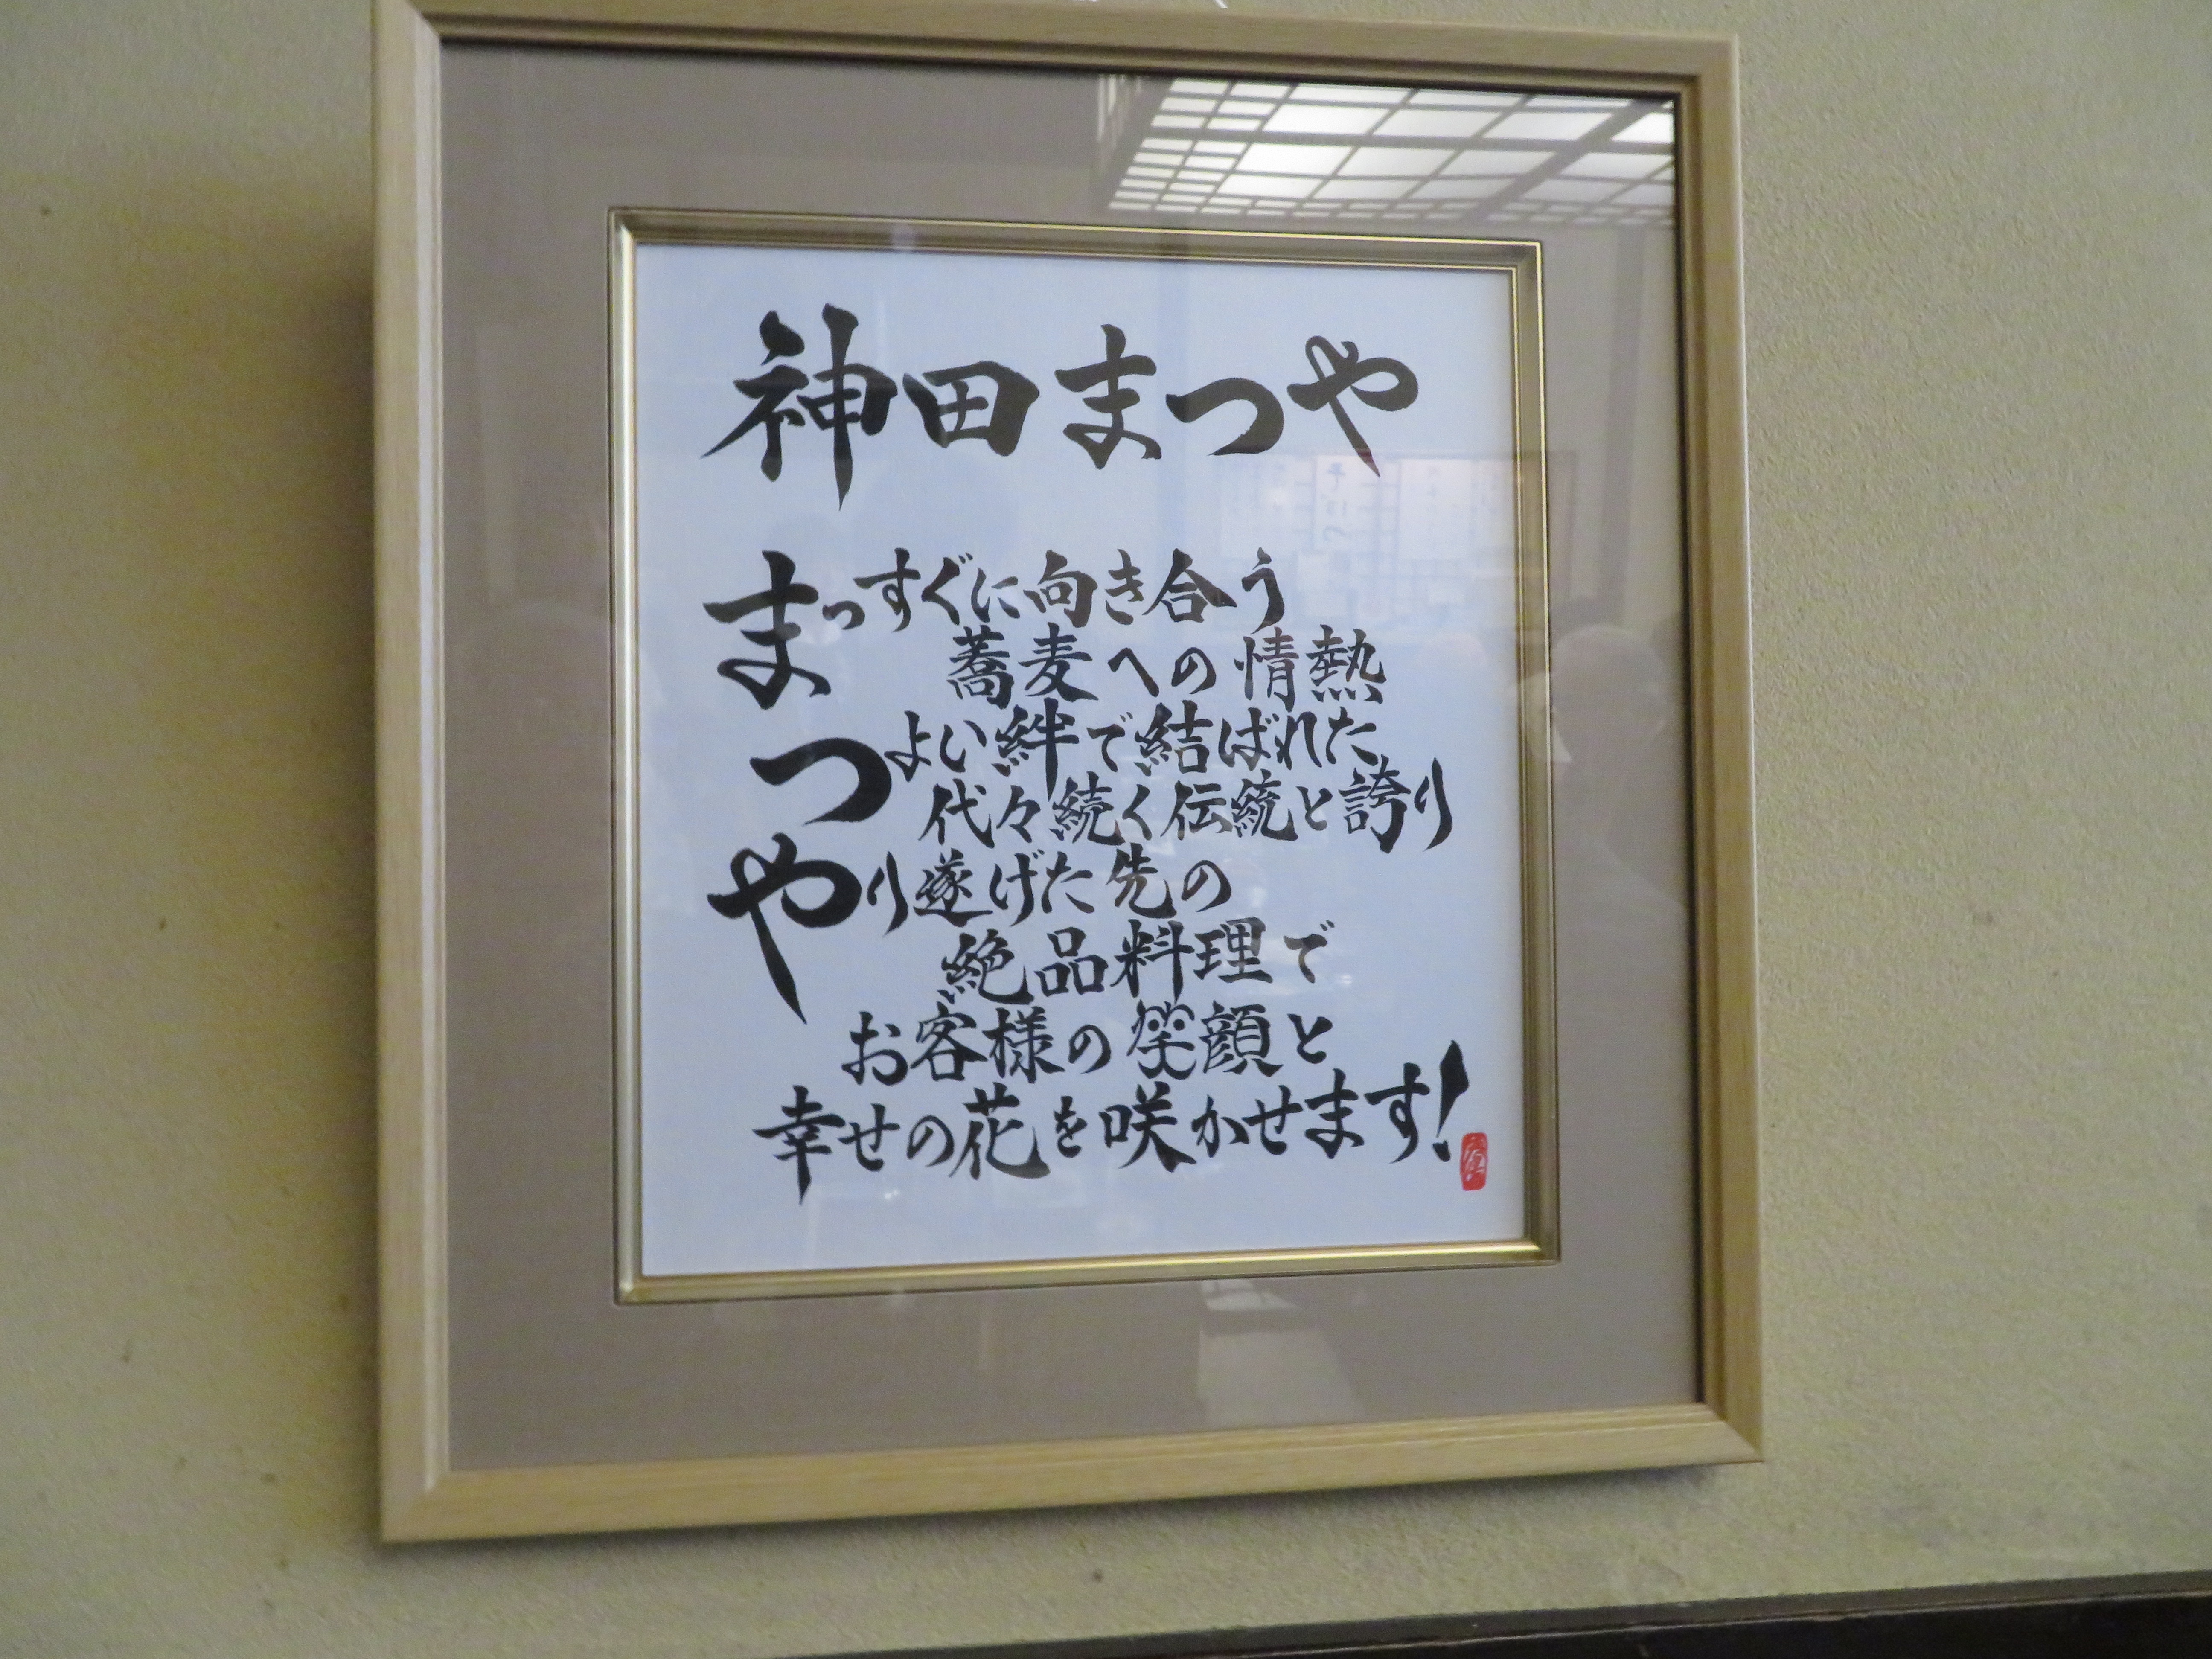 神田まつや
まっすぐに向き合う
蕎麦への情熱
つよい絆で結ばれた
代々続く伝統と誇り
やり遂げた先の
絶品料理で
お客様の笑顔と
幸せの花を咲かせます!